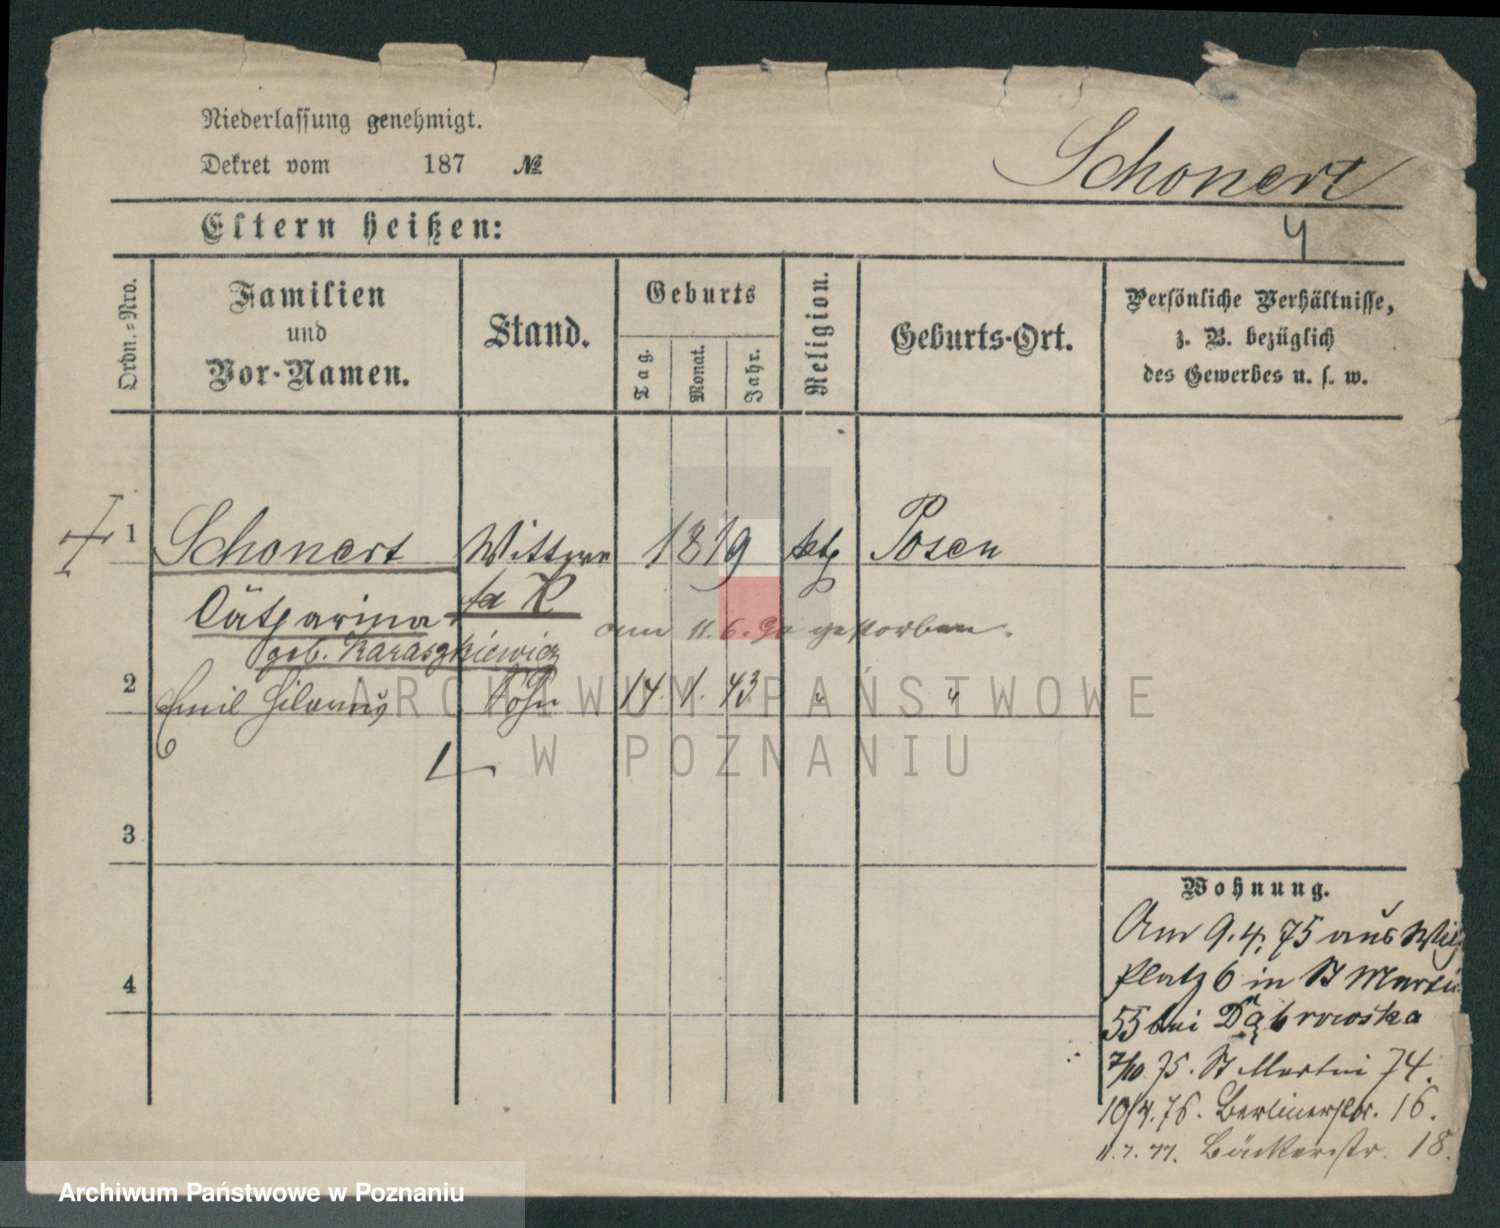 Niederlassung genehmigt.
Dekret vom 187 №
Schonert
Eltern heißen:
4
Ordn.-Nro.
Familien und Vor-Namen.
Stand.
Geburts
Tag.
Monat.
Jahr.
Religion.
Geburts-Ort.
Persönliche Verhältnisse,
z. B. bezüglich
des Gewerbes u. s. w.
1 Schonert Wittwe 1819 ktl Posen
Catharina
am 11.6.90 gestorben.
geb. Karaszkiewicz
2 Emil Hilarius Sohn 14. 1. 43 " "
3
4
Wohnung.
Am 9.4.75 aus Wilh
Platz 6 in St Martin
55 bei Dąbrowska
7/10 75. St Martin 74.
10/4.76. Berlinerstr. 16.
11.7.77. Bäckerstr. 18.
ARCHIWUM PAŃSTWOWE
W POZNANIU
Archiwum Państwowe w Poznaniu